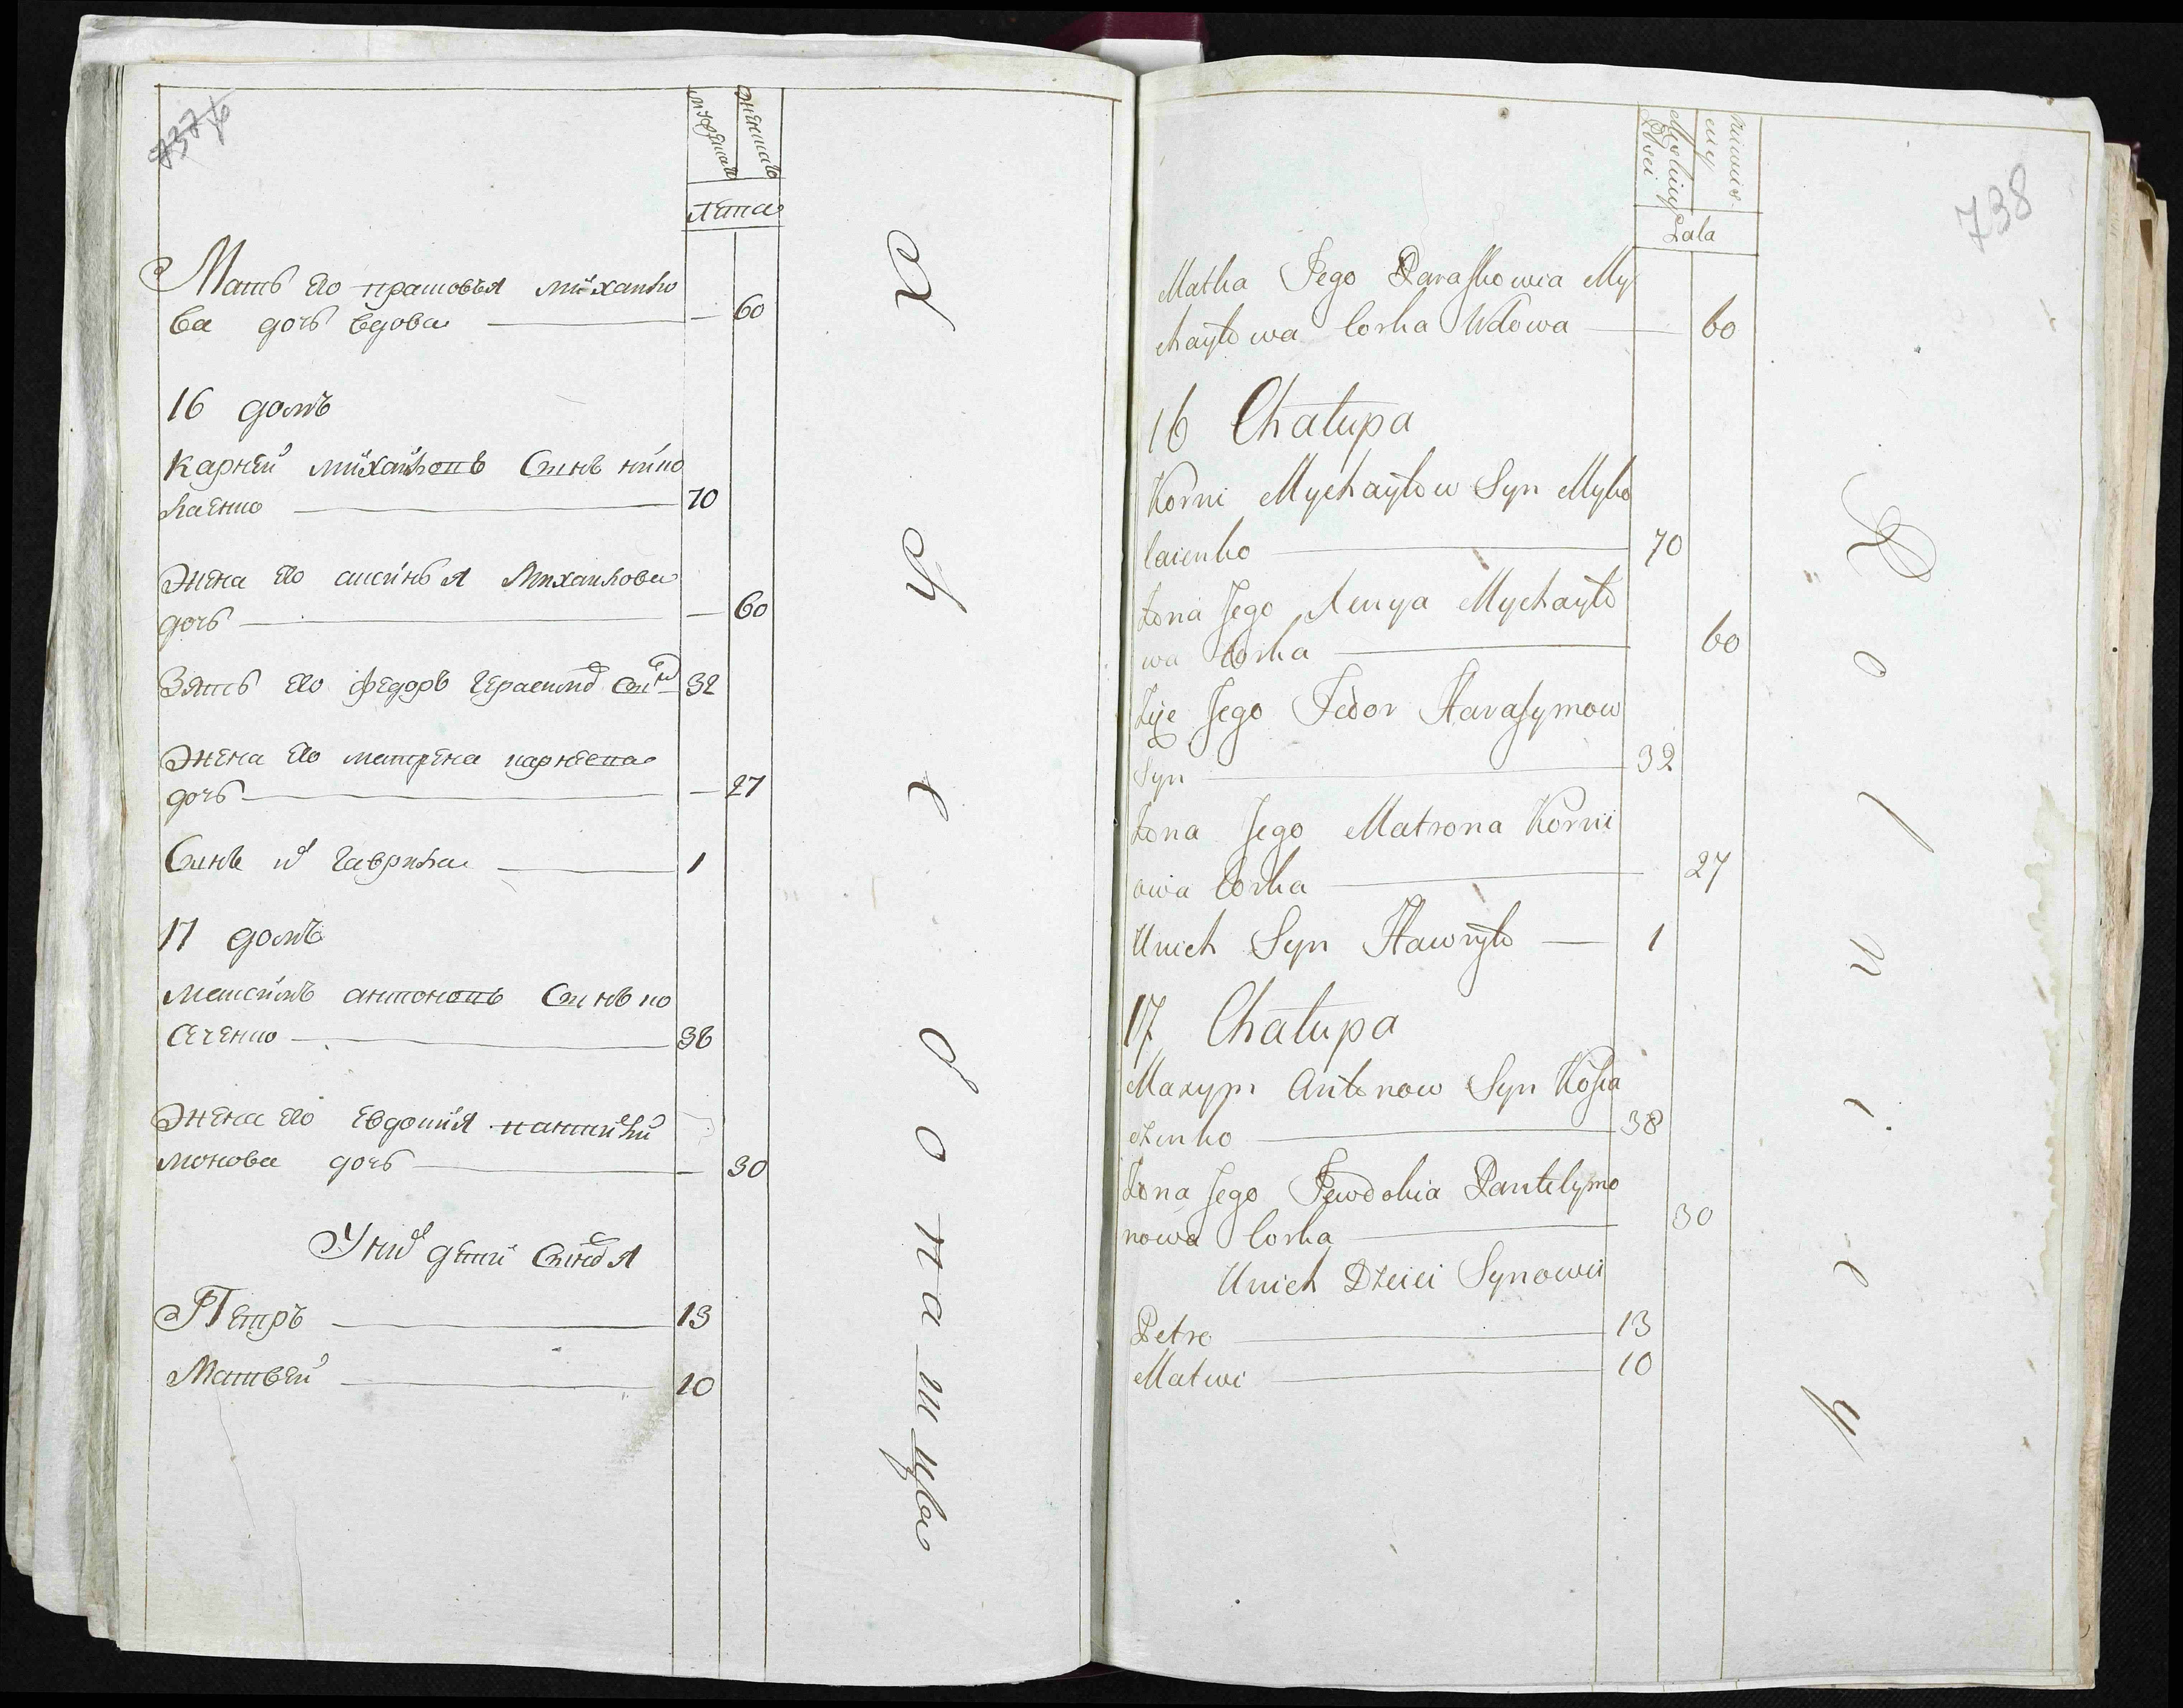 737 об
мужеска
женска
Лета
Мать его прасковья михайло
ва дочь вдова — 60
16 домъ
Карней михайловъ Синъ нико
лаенко 70
Жена его аксинья Михайлова
дочь — 60
Зять его федоръ герасимов син 32
Жена его матрена карнеева
дочь — 27
Синъ их гаврила 1
17 домъ
максимъ антоновъ Синъ ко
сеченко 38
Жена его евдокия пантили
монова дочь — 30
У них дети Синовя
Петръ 13
Матвей 10
738
Lata
Matka Jego Paraskowia My
chayło wa Corka Wdowa 60
16 Chałupa
Korni Mychayłow Syn Myko
laienko 70
Żona Jego Xenya Mychayło
wa Corka 60
Zięć Jego Fedor Harasymow
Syn 32
Żona Jego Matrona Korni
owa Corka 27
Unich Syn Hawryło — 1
17 Chałupa
Maxym Antonow Syn Kosia
czenko 38
Żona Jego Jewdokia Pantelymo
nowa Corka 30
Unich Dzieci Synowei
Petro 13
Matwi 10